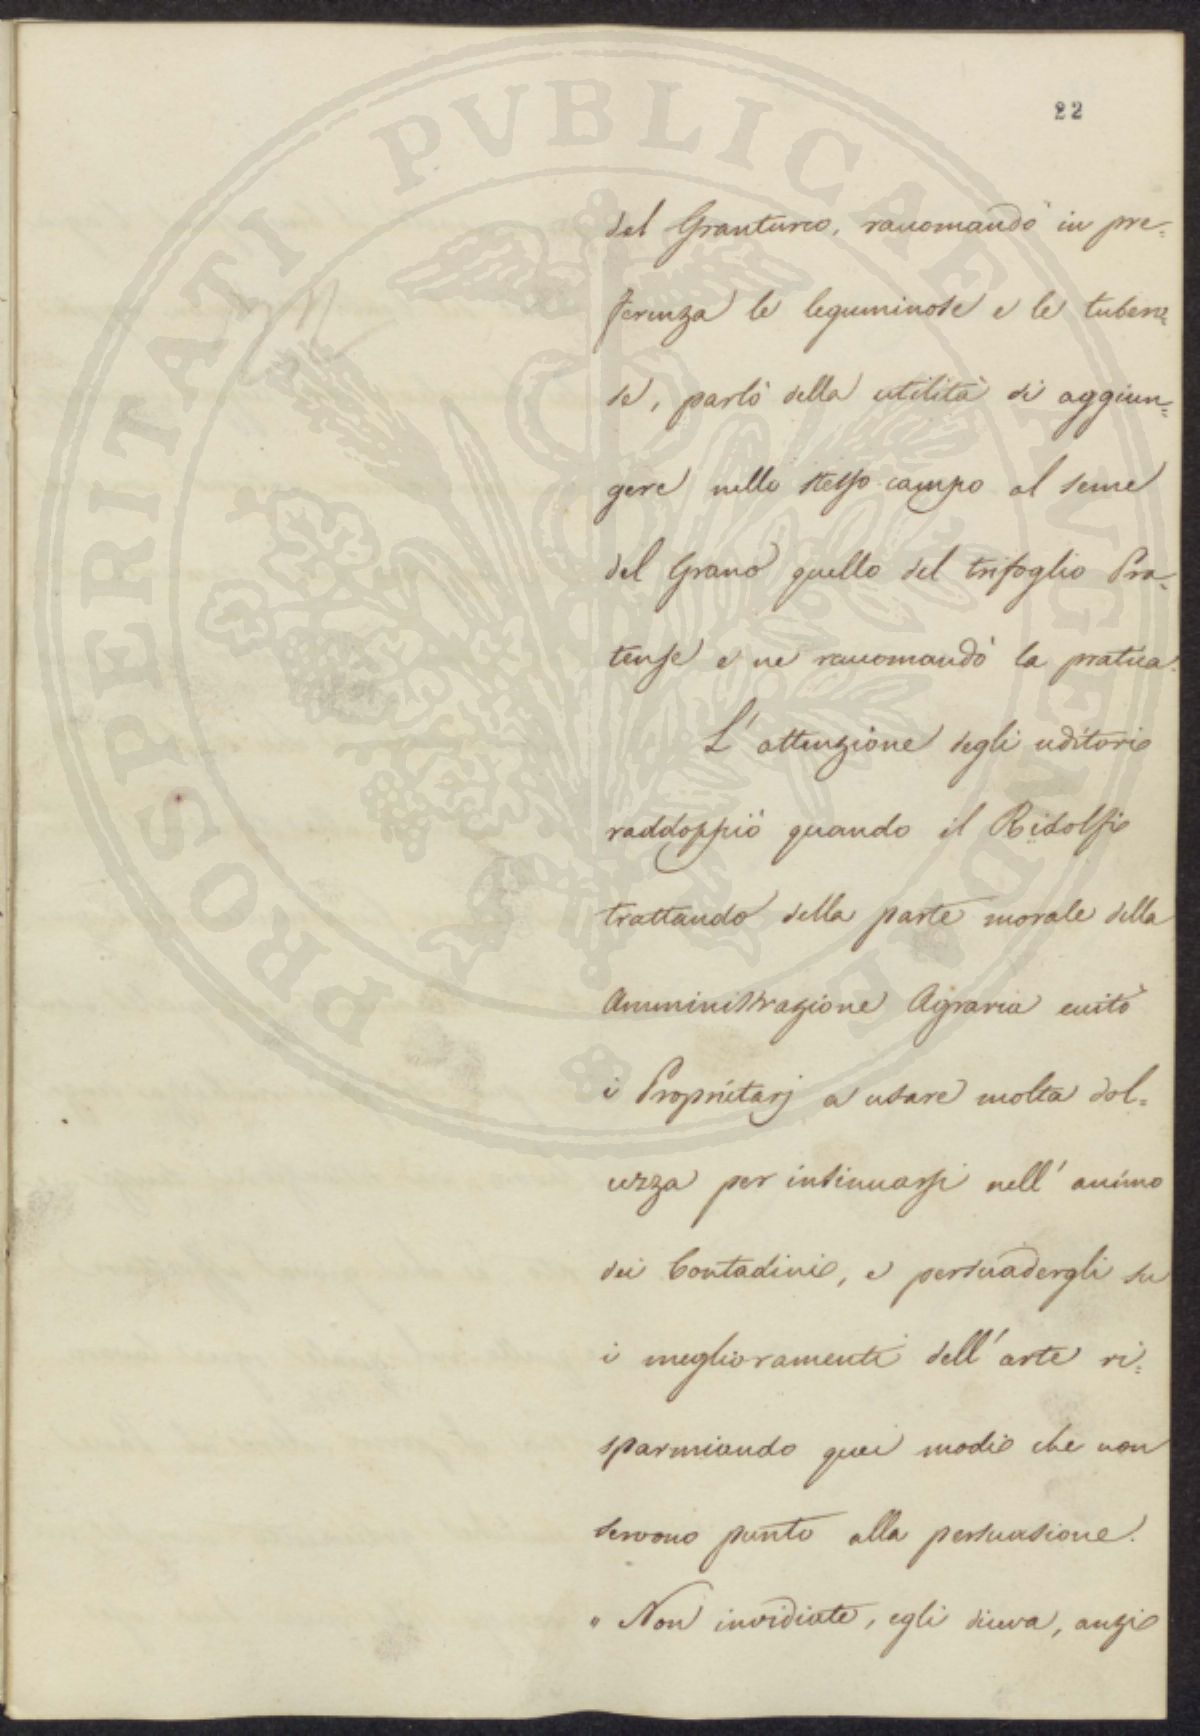 PROSPERITATI PVBLICAE AVGENDAE
22
del Granturco, raccomandò in pre=
ferenza le leguminose e le tubero=
se, parlò della utilità di aggiun=
gere nello stesso campo al seme
del Grano quello del trifoglio Pra=
tense e ne raccomandò la pratica.
L'attenzione degli uditori
raddoppiò quando il Ridolfi
trattando della parte morale della
Amministrazione Agraria
i Proprietarj a usare molta dol=
cezza per insinuarsi nell'animo
dei Contadini, e persuadergli su
i miglioramenti dell'arte ri=
sparmiando quei modi che non
servono punto alla persuasione.
" Non invidiate, egli diceva, anzi